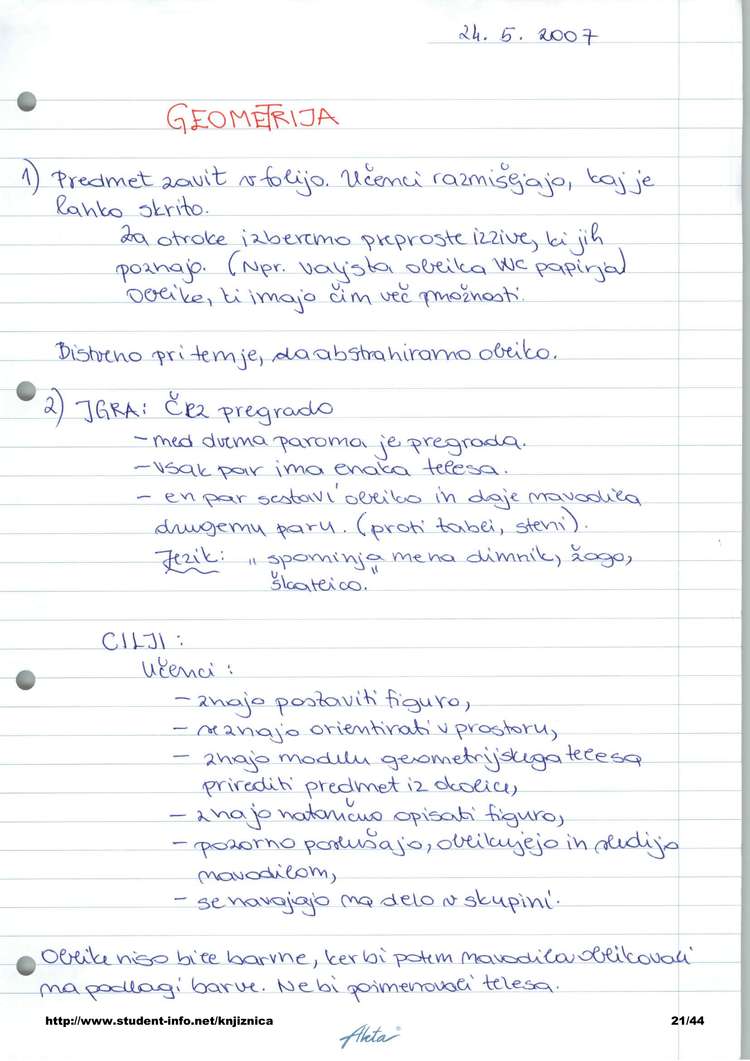 24. 5. 2007
GEOMETRIJA
1) Predmet zavit v folijo. Učenci razmišljajo, kaj je
lahko skrito.
Za otroke izberemo preproste izzive, ki jih
poznajo. (Npr. valjsta oblika WC papirja)
Oblike, ki imajo čim več možnosti.
Bistveno pri tem je, da abstrahiramo obliko.
2) IGRA: ČEZ pregrado
- med dvema paroma je pregrada.
- vsak par ima enaka telesa.
- en par sestavi obliko in daje navodila
drugemu paru. (proti tabli, steni).
Jezik: „spominja mena dimnik, žogo,
škatlico."
CILJI:
Učenci:
- znajo postaviti figuro,
- se znajo orientirati v prostoru,
- znajo modelu geometrijskega telesa
prirediti predmet iz okolice,
- znajo natančno opisati figuro,
- pozorno poslušajo, oblikujejo in sledijo
navodilom,
- se navajajo na delo v skupini.
Oblike niso bile barvne, ker bi potem navodila oblikovali
na podlagi barve. Ne bi poimenovali telesa.
http://www.student-info.net/knjiznica
21/44
Akta